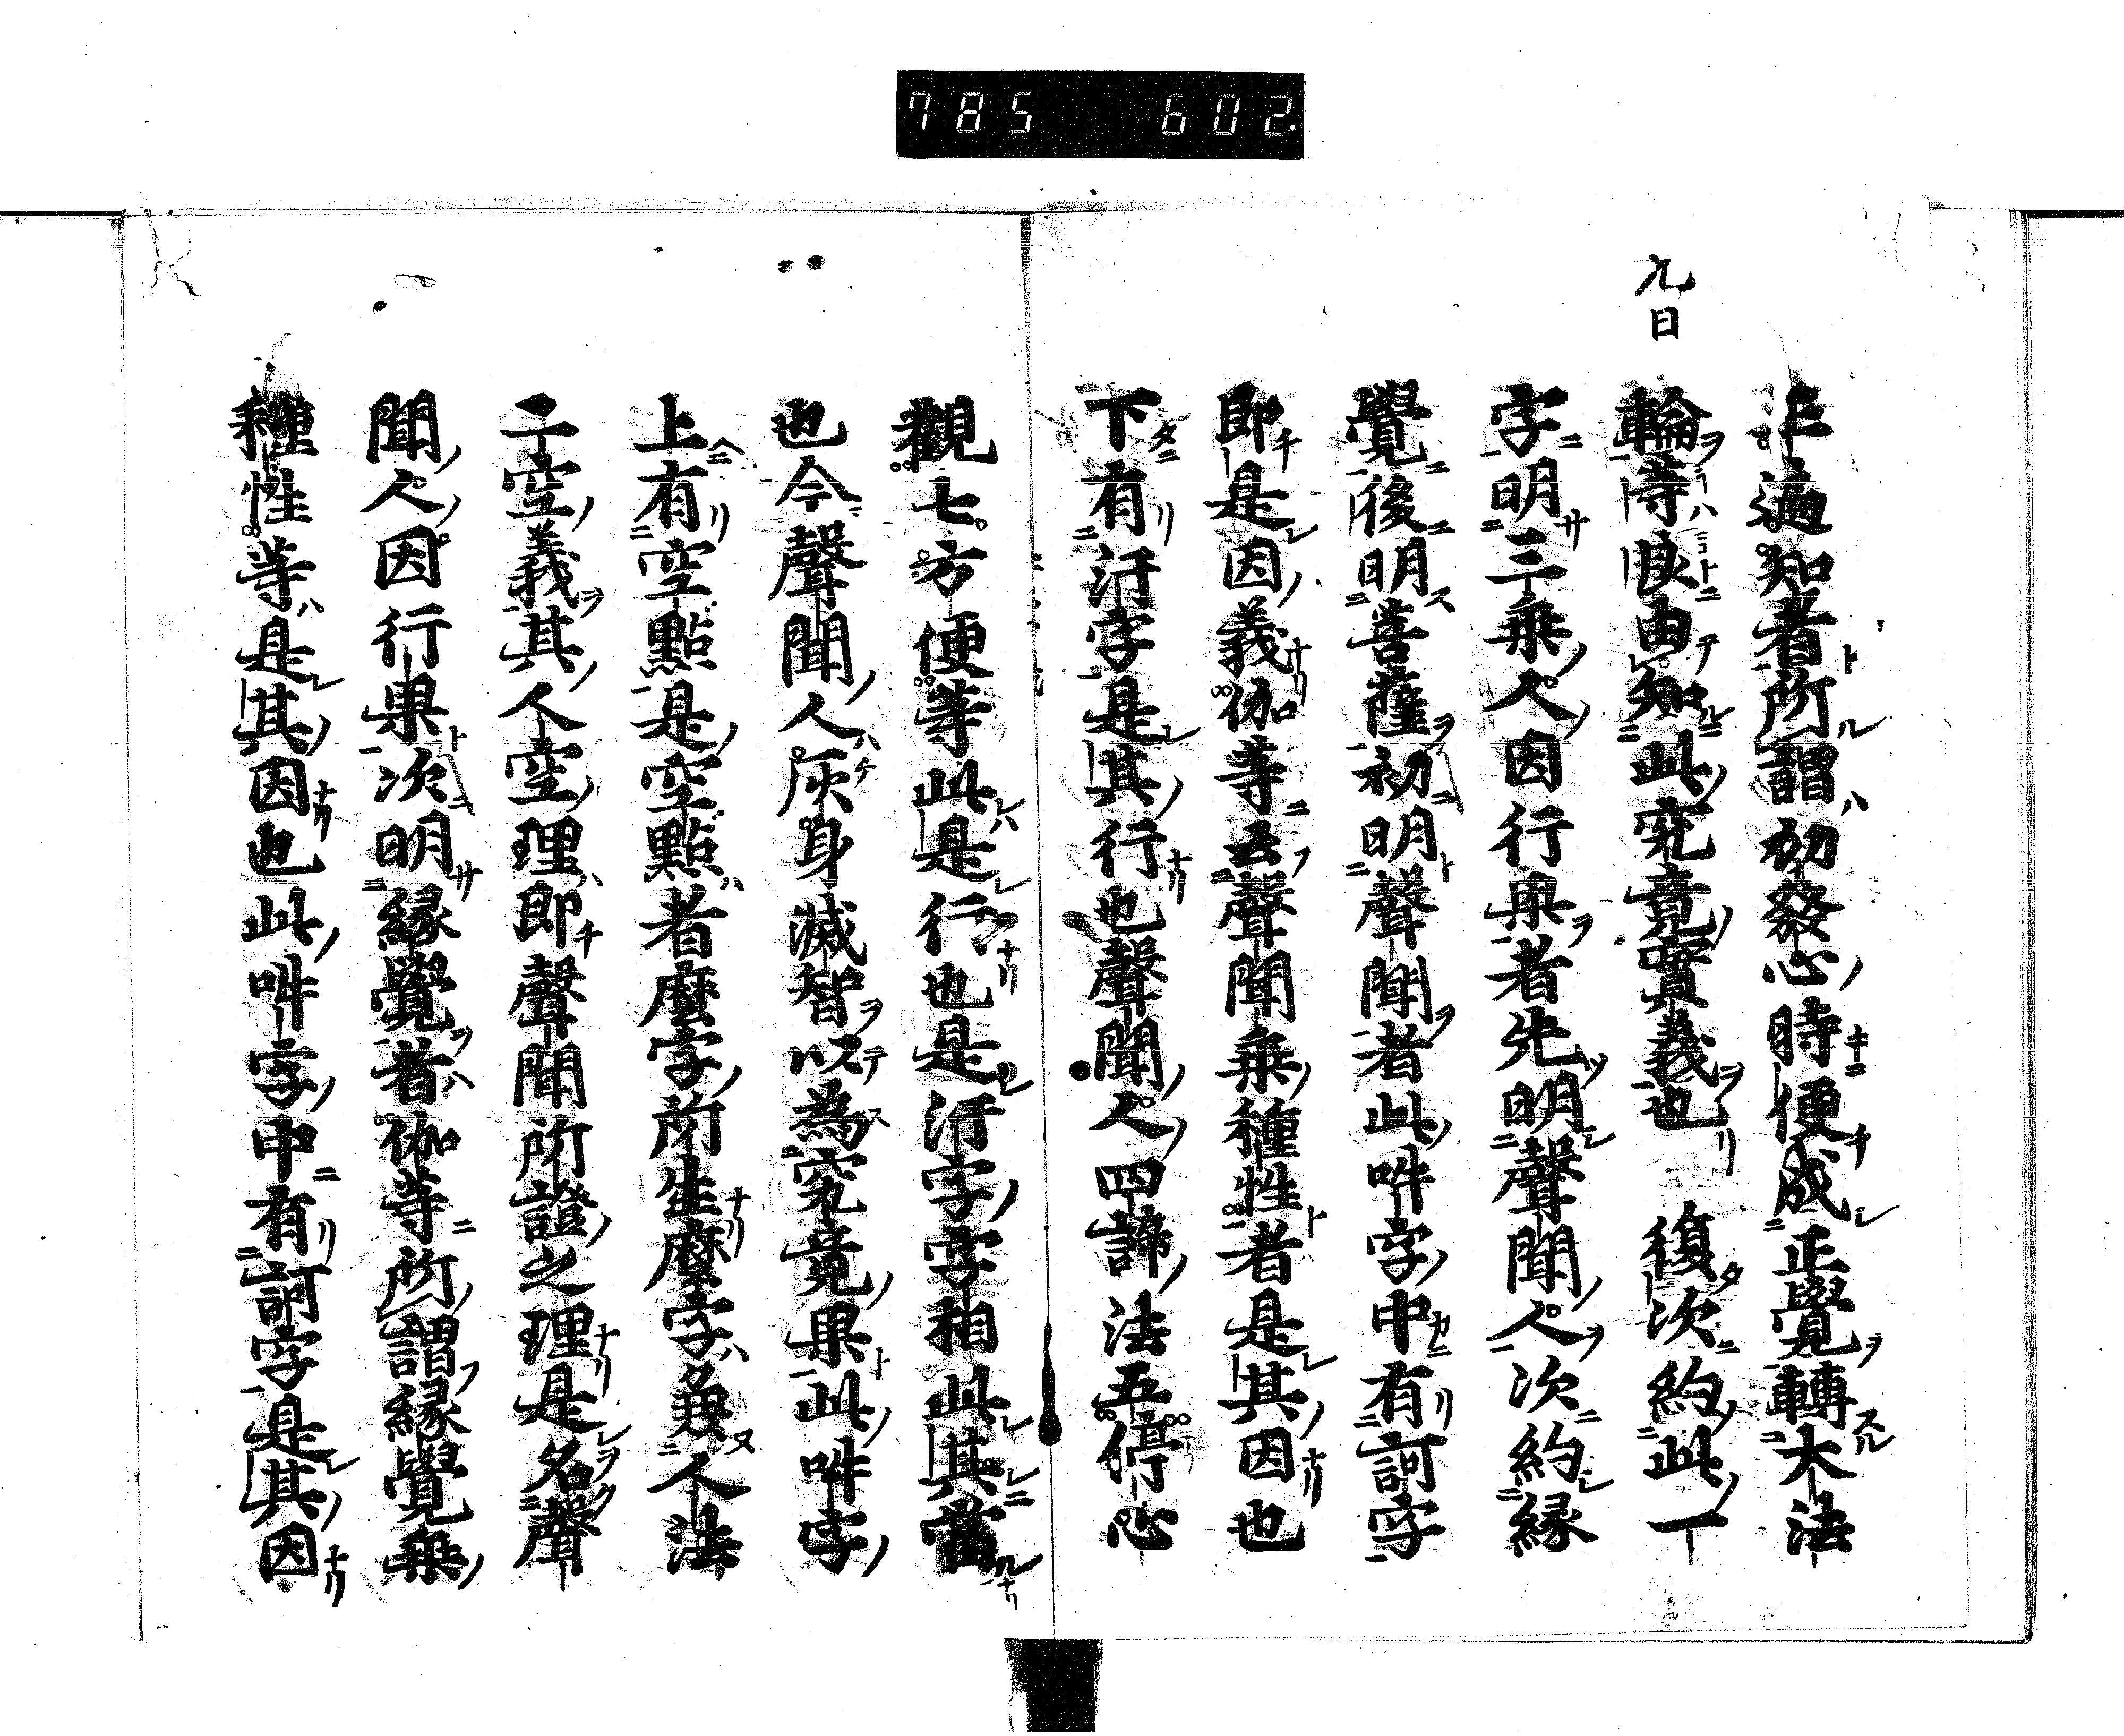 785 602.
九日
正遍知者所謂初發心時便成正覺轉大法
輪等良由知此究竟實義也 復次約此一
字明三乘人因行果者先明聲聞人次約緣
覺後明菩薩初明聲聞者此吽字中有訶字
即是因義伽等云聲聞乘種性者是其因也
下有汙字是其行也聲聞人四諦法五停心
觀七方便等此是行也是汙字字相此其當
也今聲聞人灰身滅智以為究竟果此吽字
上有空點是空點者麼字所生麼字兼人法
二空義其人空理即聲聞所證之理是名聲
聞人因行果次明緣覺者伽等所謂緣覺乘
種性等是其因也此吽字中有訶字是其因